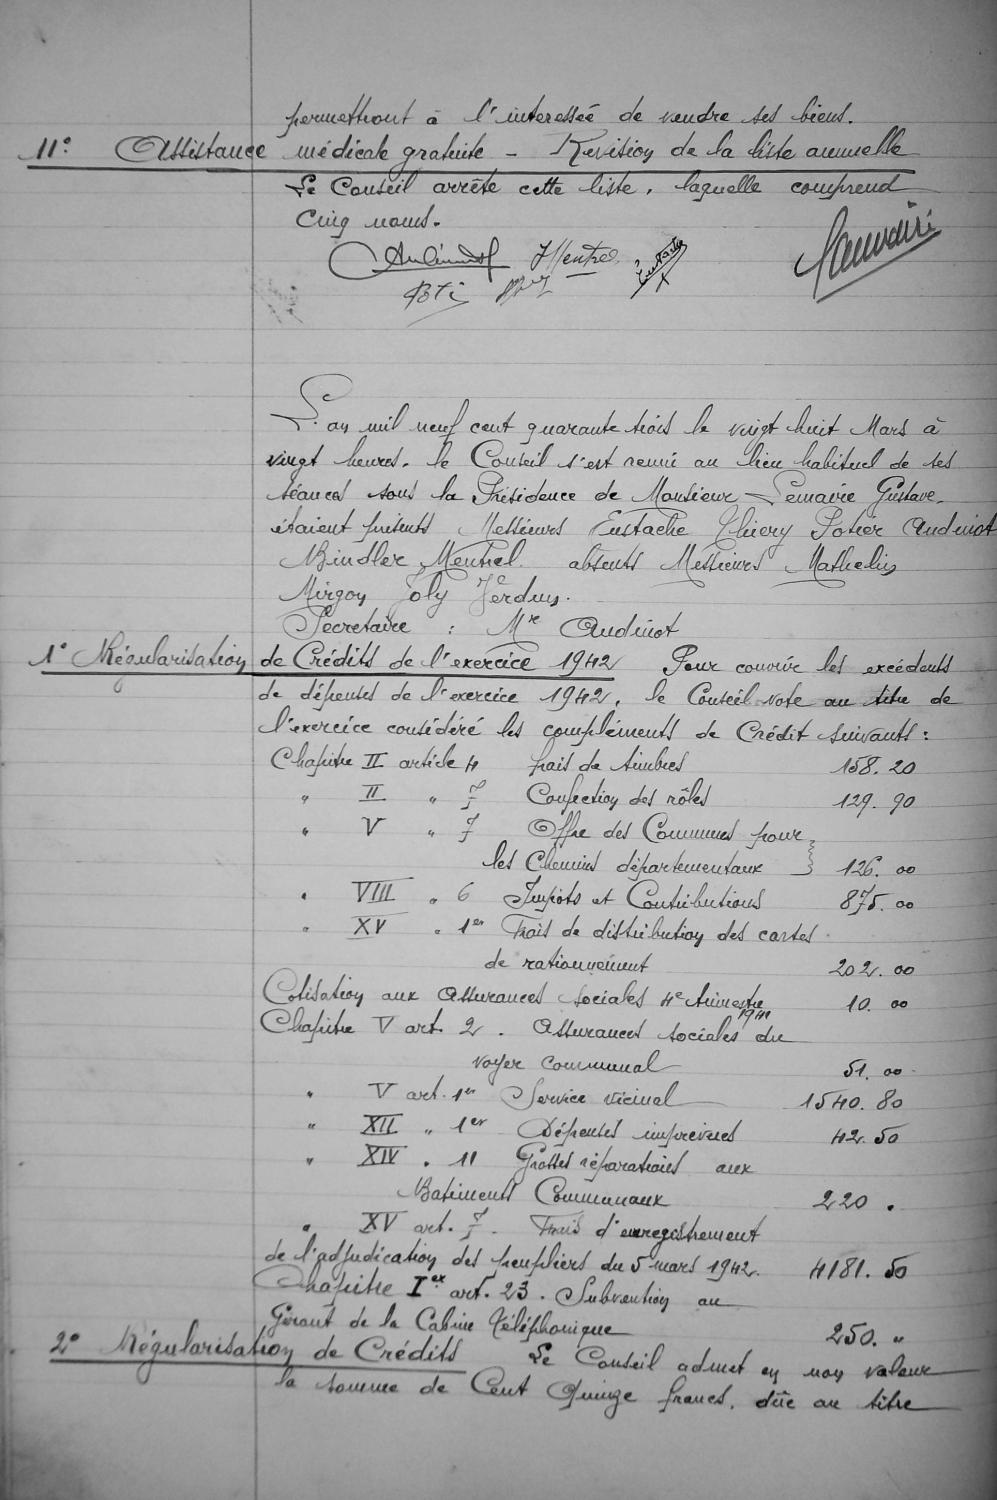 permettront à l'interessée de vendre ses biens.
11° Assistance médicale gratuite - Revision de la liste annuelle
Le Conseil arrête cette liste, laquelle comprend
Cinq noms.
Audinot Mentrel Eustache Lemaire
L'an mil neuf cent quarante trois le vingt huit Mars à
vingt heures. le Conseil s'est reuni au lieu habituel de ses
séances sous la Présidence de Monsieur Lemaire Gustave.
étaient présents Messieurs Eustache Thiery Potier Audinot
Bindler Mentrel. absents Messieurs Mathelin
Mirgon Joly Verdun.
Secretaire : Mr Audinot
1° Régularisation de Crédits de l'exercice 1942 Pour couvrir les excédents
de dépenses de l'exercice 1942, le Conseil vote au titre de
l'exercice considéré les compléments de Crédit suivants :
Chapitre II article 4 frais de timbres 158.20
" II " 7 Confection des rôles 129.90
" V " 7 Offre des Communes pour
les Chemins départementaux } 126.00
" VIII " 6 Impots et Contributions 875.00
" XV " 1er Frais de distribution des cartes
de rationnement 202.00
Cotisation aux Assurances Sociales 4e trimestre 1941 10.00
Chapitre V art. 2. Assurances sociales du
voyer communal 51.00
" V art. 1er Service vicinal 1540.80
" XII " 1er Dépenses imprévues 42.50
" XIV " 11 Grosses réparations aux
Batiments Communaux 220 "
" XV art. 7. Frais d'enregistrement
de l'adjudication des peupliers du 5 mars 1942. 4181.50
Chapitre Ier art. 23. Subvention au
Gérant de la Cabine Téléphonique 250. "
2° Régularisation de Crédits Le Conseil admet en non valeur
la somme de Cent Quinze francs, dûe au titre